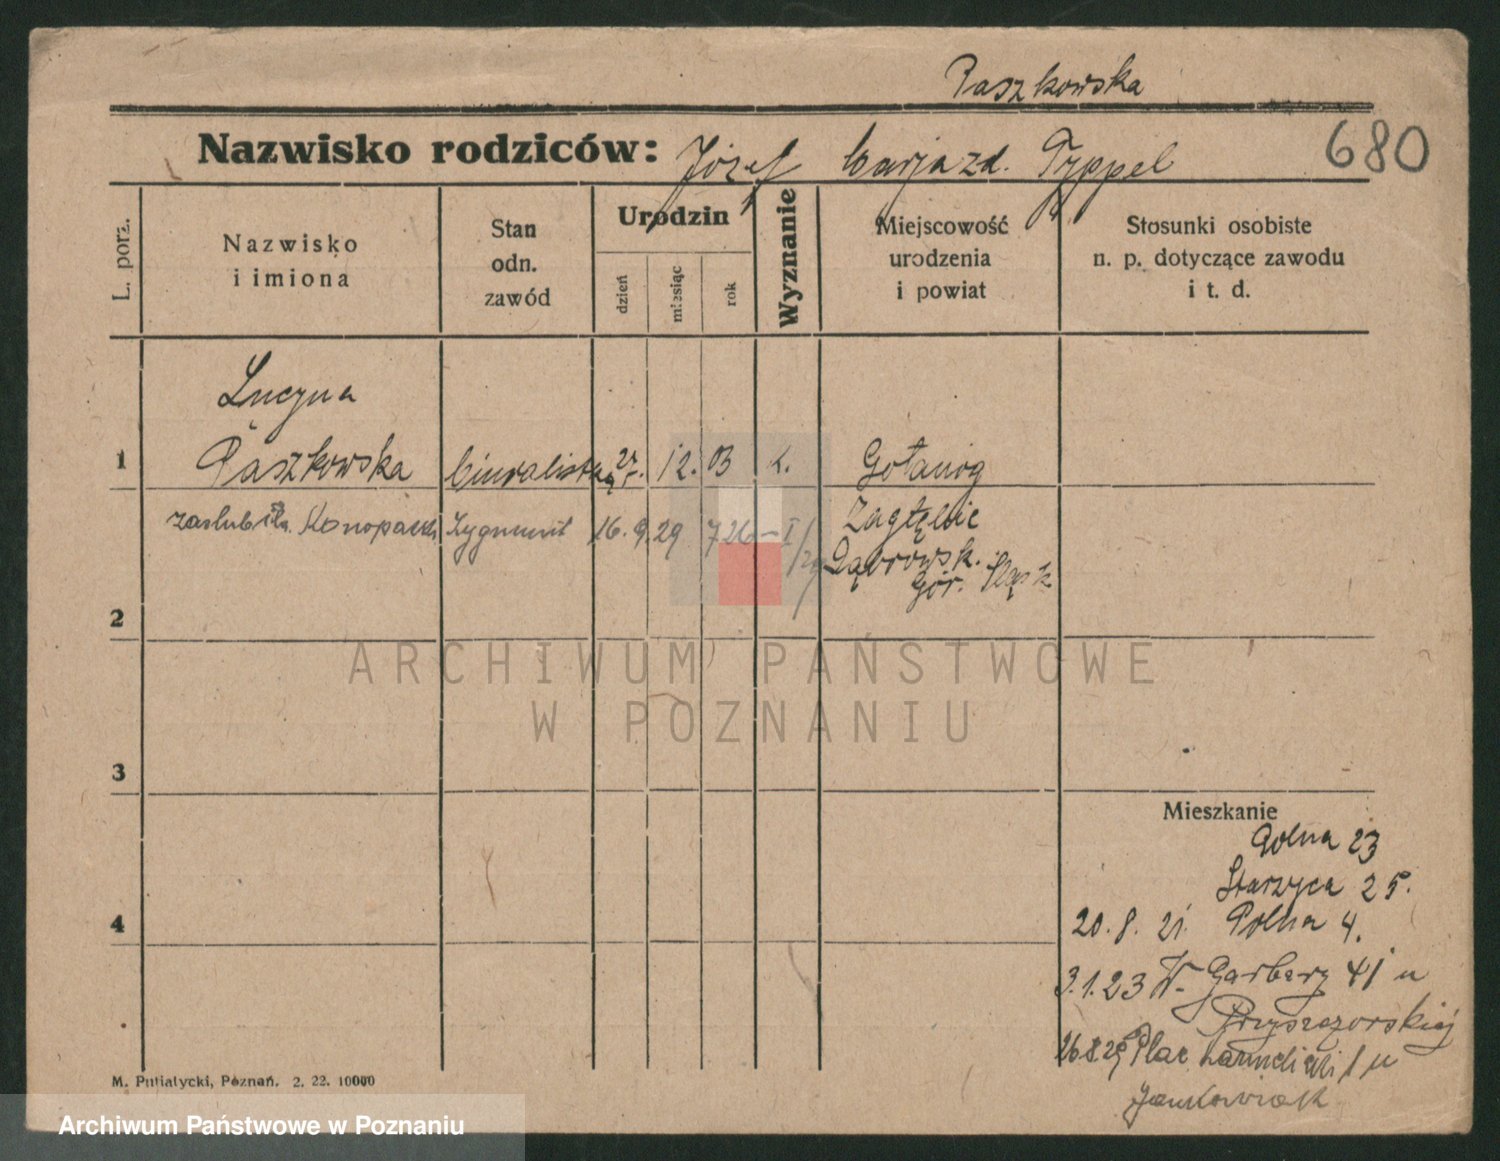 Paszkowska
Nazwisko rodziców: Józef Marja zd. Typpel
680
L. porz.
Nazwisko
i imiona
Stan
odn.
zawód
Urodzin
dzień
miesiąc
rok
Wyznanie
Miejscowość
urodzenia
i powiat
Stosunki osobiste
n. p. dotyczące zawodu
i t. d.
Lucyna
1 Paszkowska biuralistka 27. 12. 03 k. Gołonóg
zaślubiła Konopacki Zygmunt 16.9.29 726 – I/29
Zagłębie
Dąbrowsk.
Gór. Śląsk
2
ARCHIWUM PAŃSTWOWE
W POZNANIU
3
Mieszkanie
Polna 23
Starzyca 25.
4
20. 8. 21. Polna 4.
3.1.23 W. Garbary 41 u
26.8.29 Plac 1 u
M. Putiatycki, Poznań. 2. 22. 10000
Archiwum Państwowe w Poznaniu